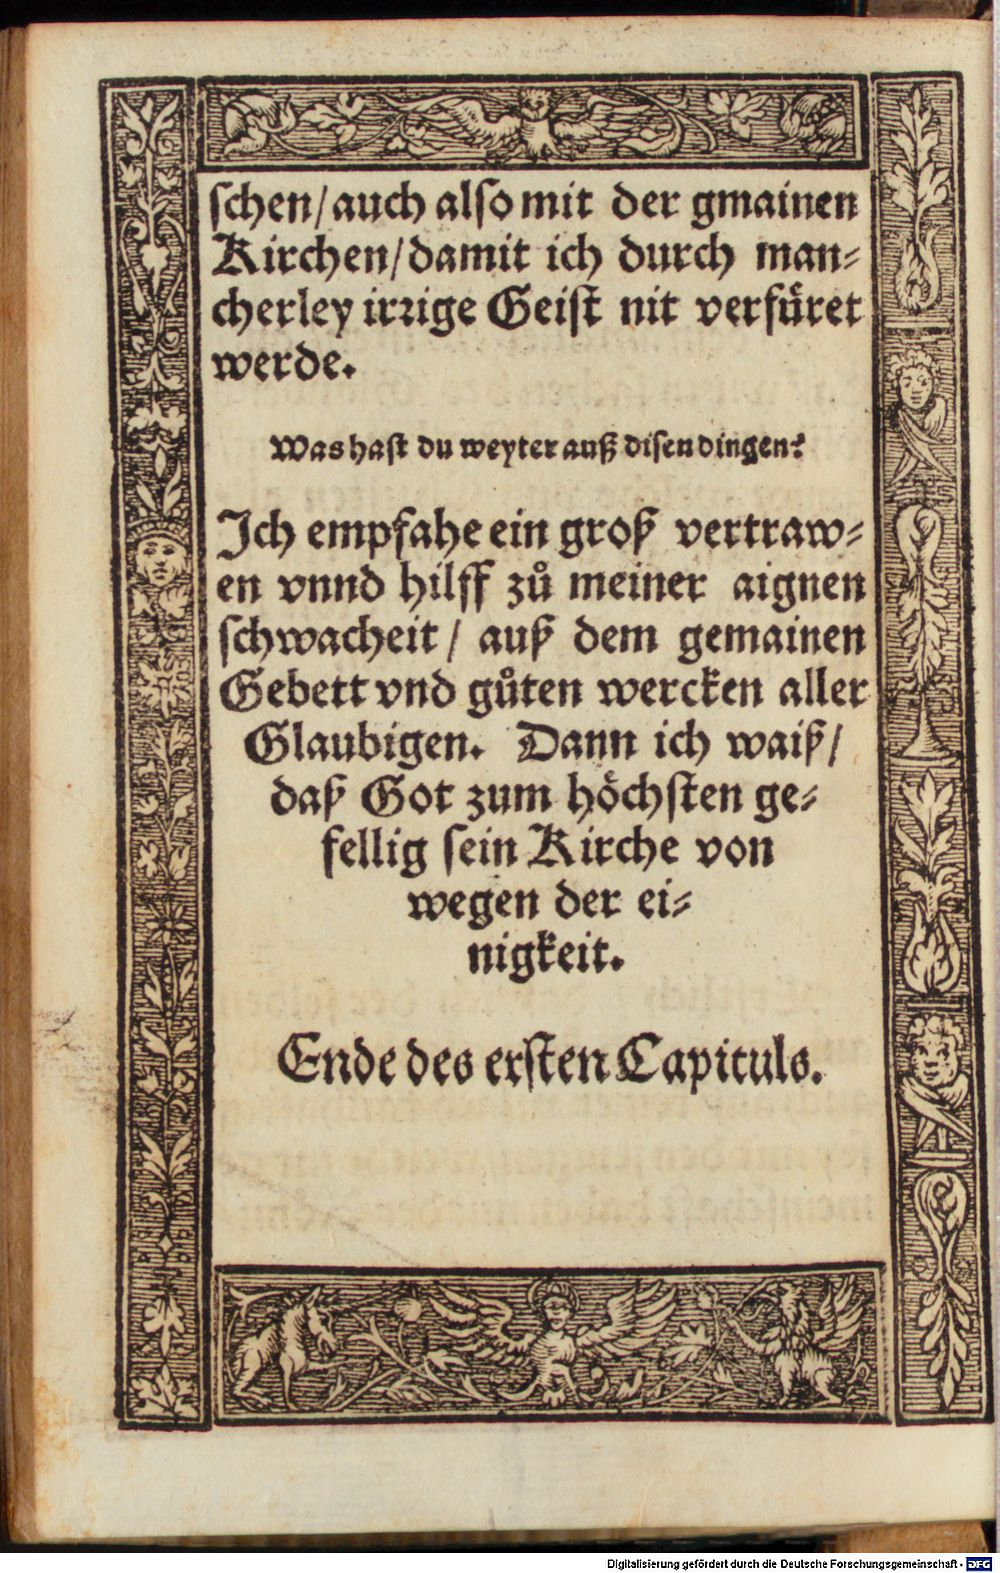 schen/auch also mit der gmainen
Kirchen/damit ich durch man⸗
cherley irꝛige Geist nit verfuͤret
werde.
Was hast du weyter auß disen dingen?
Ich empfahe ein groß vertraw⸗
en vnnd hilff zuͦ meiner aignen
schwacheit / auß dem gemainen
Gebett vnd guͦten wercken aller
Glaubigen. Dann ich waiß/
daß Got zum hoͤchsten ge⸗
fellig sein Kirche von
wegen der ei⸗
nigkeit.
Ende des ersten Capituls.
Digitalisierung gefördert durch die Deutsche Forschungsgemeinschaft - DFG